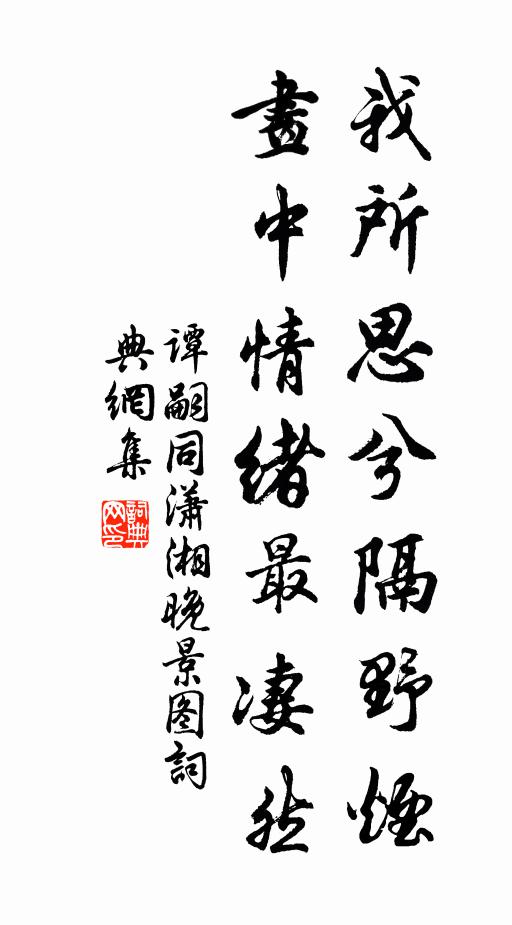 我所思兮隔野煙
畫中情緒最凄然
譚嗣同瀟湘晚景图詞
典網集
詞典网印